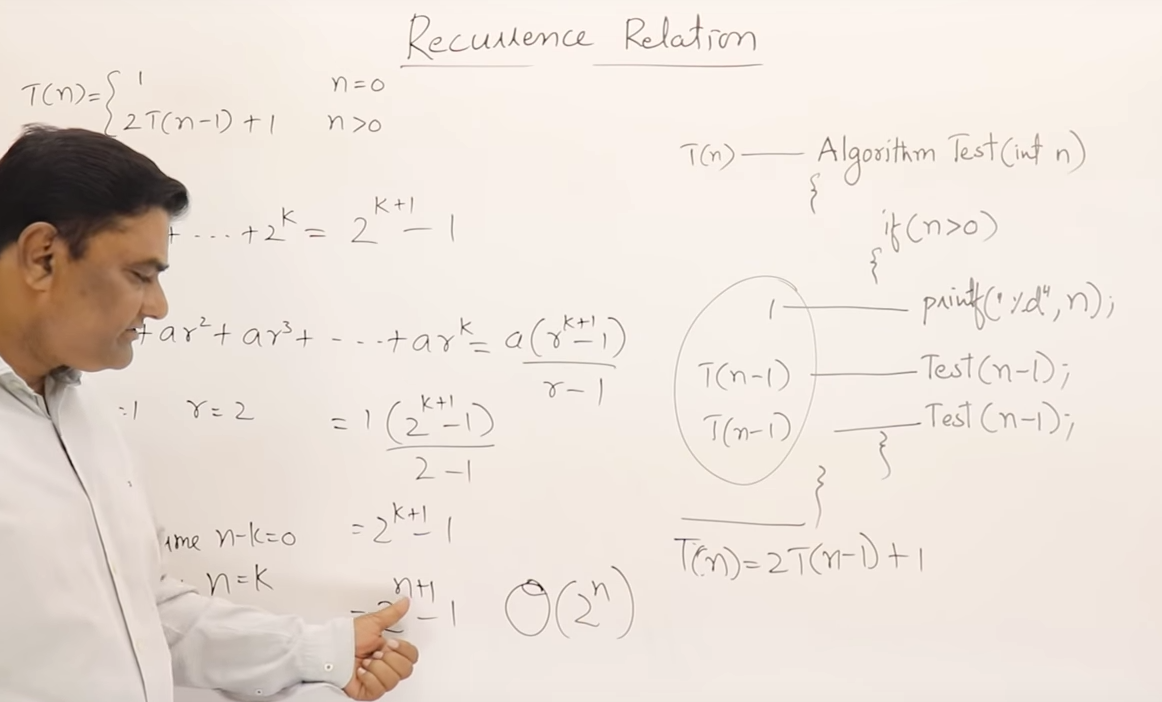 Recurrence Relation
T(n)= { 1 n=0
2T(n-1)+1 n>0
+ ... +2^k = 2^(k+1) - 1
+ar²+ar³+ - ...+ar^k = a(r^(k+1)-1)
r-1
=1 r=2 = 1(2^(k+1)-1)
2-1
n-k=0 = 2^(k+1)-1
n=k = 2^(n+1)-1 O(2^n)
T(n) — Algorithm Test(int n)
{
if(n>0)
{
1 — printf("%d", n);
T(n-1) — Test(n-1);
T(n-1) — Test(n-1);
}
}
T(n)=2T(n-1)+1